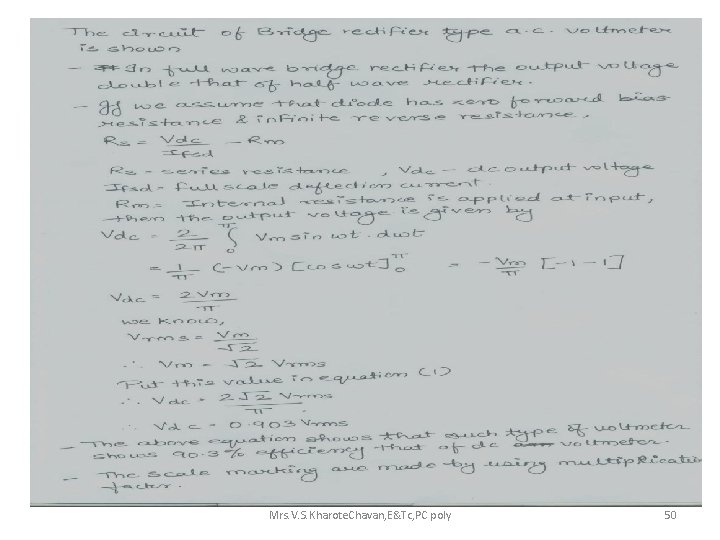 The circuit of Bridge rectifier type a.c. voltmeter
is shown
- In full wave bridge rectifier the output voltage
double that of half wave rectifier.
- If we assume that diode has zero forward bias
resistance & infinite reverse resistance.
Rs = Vdc / Ifsd - Rm
Rs - series resistance , Vdc - dc output voltage
Ifsd - full scale deflection current.
Rm = Internal resistance is applied at input,
then the output voltage is given by
Vdc = 2/2π ∫₀^π Vm sin wt . dwt
= 1/π (-Vm) [cos wt]₀^π = - Vm/π [-1-1]
Vdc = 2Vm/π
we know,
Vrms = Vm/√2
∴ Vm = √2 Vrms
Put this value in equation (1)
∴ Vdc = 2√2 Vrms / π
∴ Vdc = 0.903 Vrms
- The above equation shows that such type of voltmeter
shows 90.3% efficiency that of dc voltmeter.
- The scale marking are made by using multiplication
factor.
Mrs.V.S.KharoteChavan,E&Tc,PC poly
50